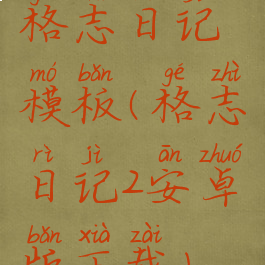 格志日记
mó bǎn gé zhì
模板(格志
rì jì ān zhuó
日记2安卓
bǎn xià zài
版下载)